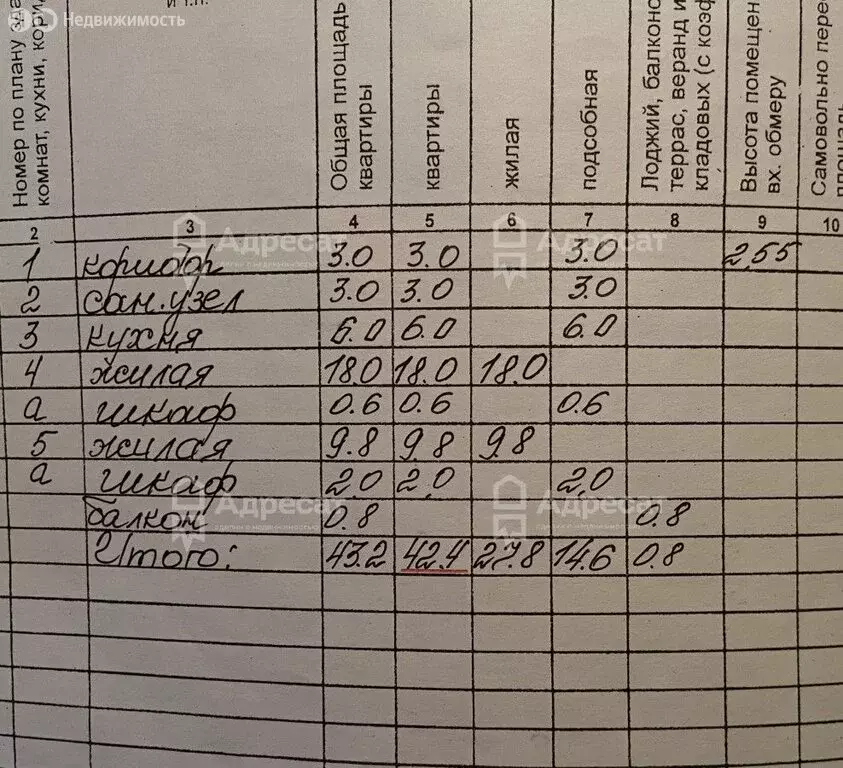 Недвижимость
и т.п.
Номер по плану зда
комнат, кухни, кори
Общая площадь
квартиры
квартиры
жилая
подсобная
Лоджий, балконо
террас, веранд и
кладовых (с коэф
Высота помещен
вх. обмеру
Самовольно пере
площадь
2 3 4 5 6 7 8 9 10
1 коридор 3.0 3.0 3.0 2,55
2 сан.узел 3.0 3.0 3.0
3 кухня 6.0 6.0 6.0
4 жилая 18.0 18.0 18.0
а шкаф 0.6 0.6 0.6
5 жилая 9.8 9.8 9.8
а шкаф 2,0 2,0 2,0
балкон 0.8 0.8
Итого: 43.2 42.4 27.8 14.6 0.8
Адресат
Адресат
Адресат
Адресат